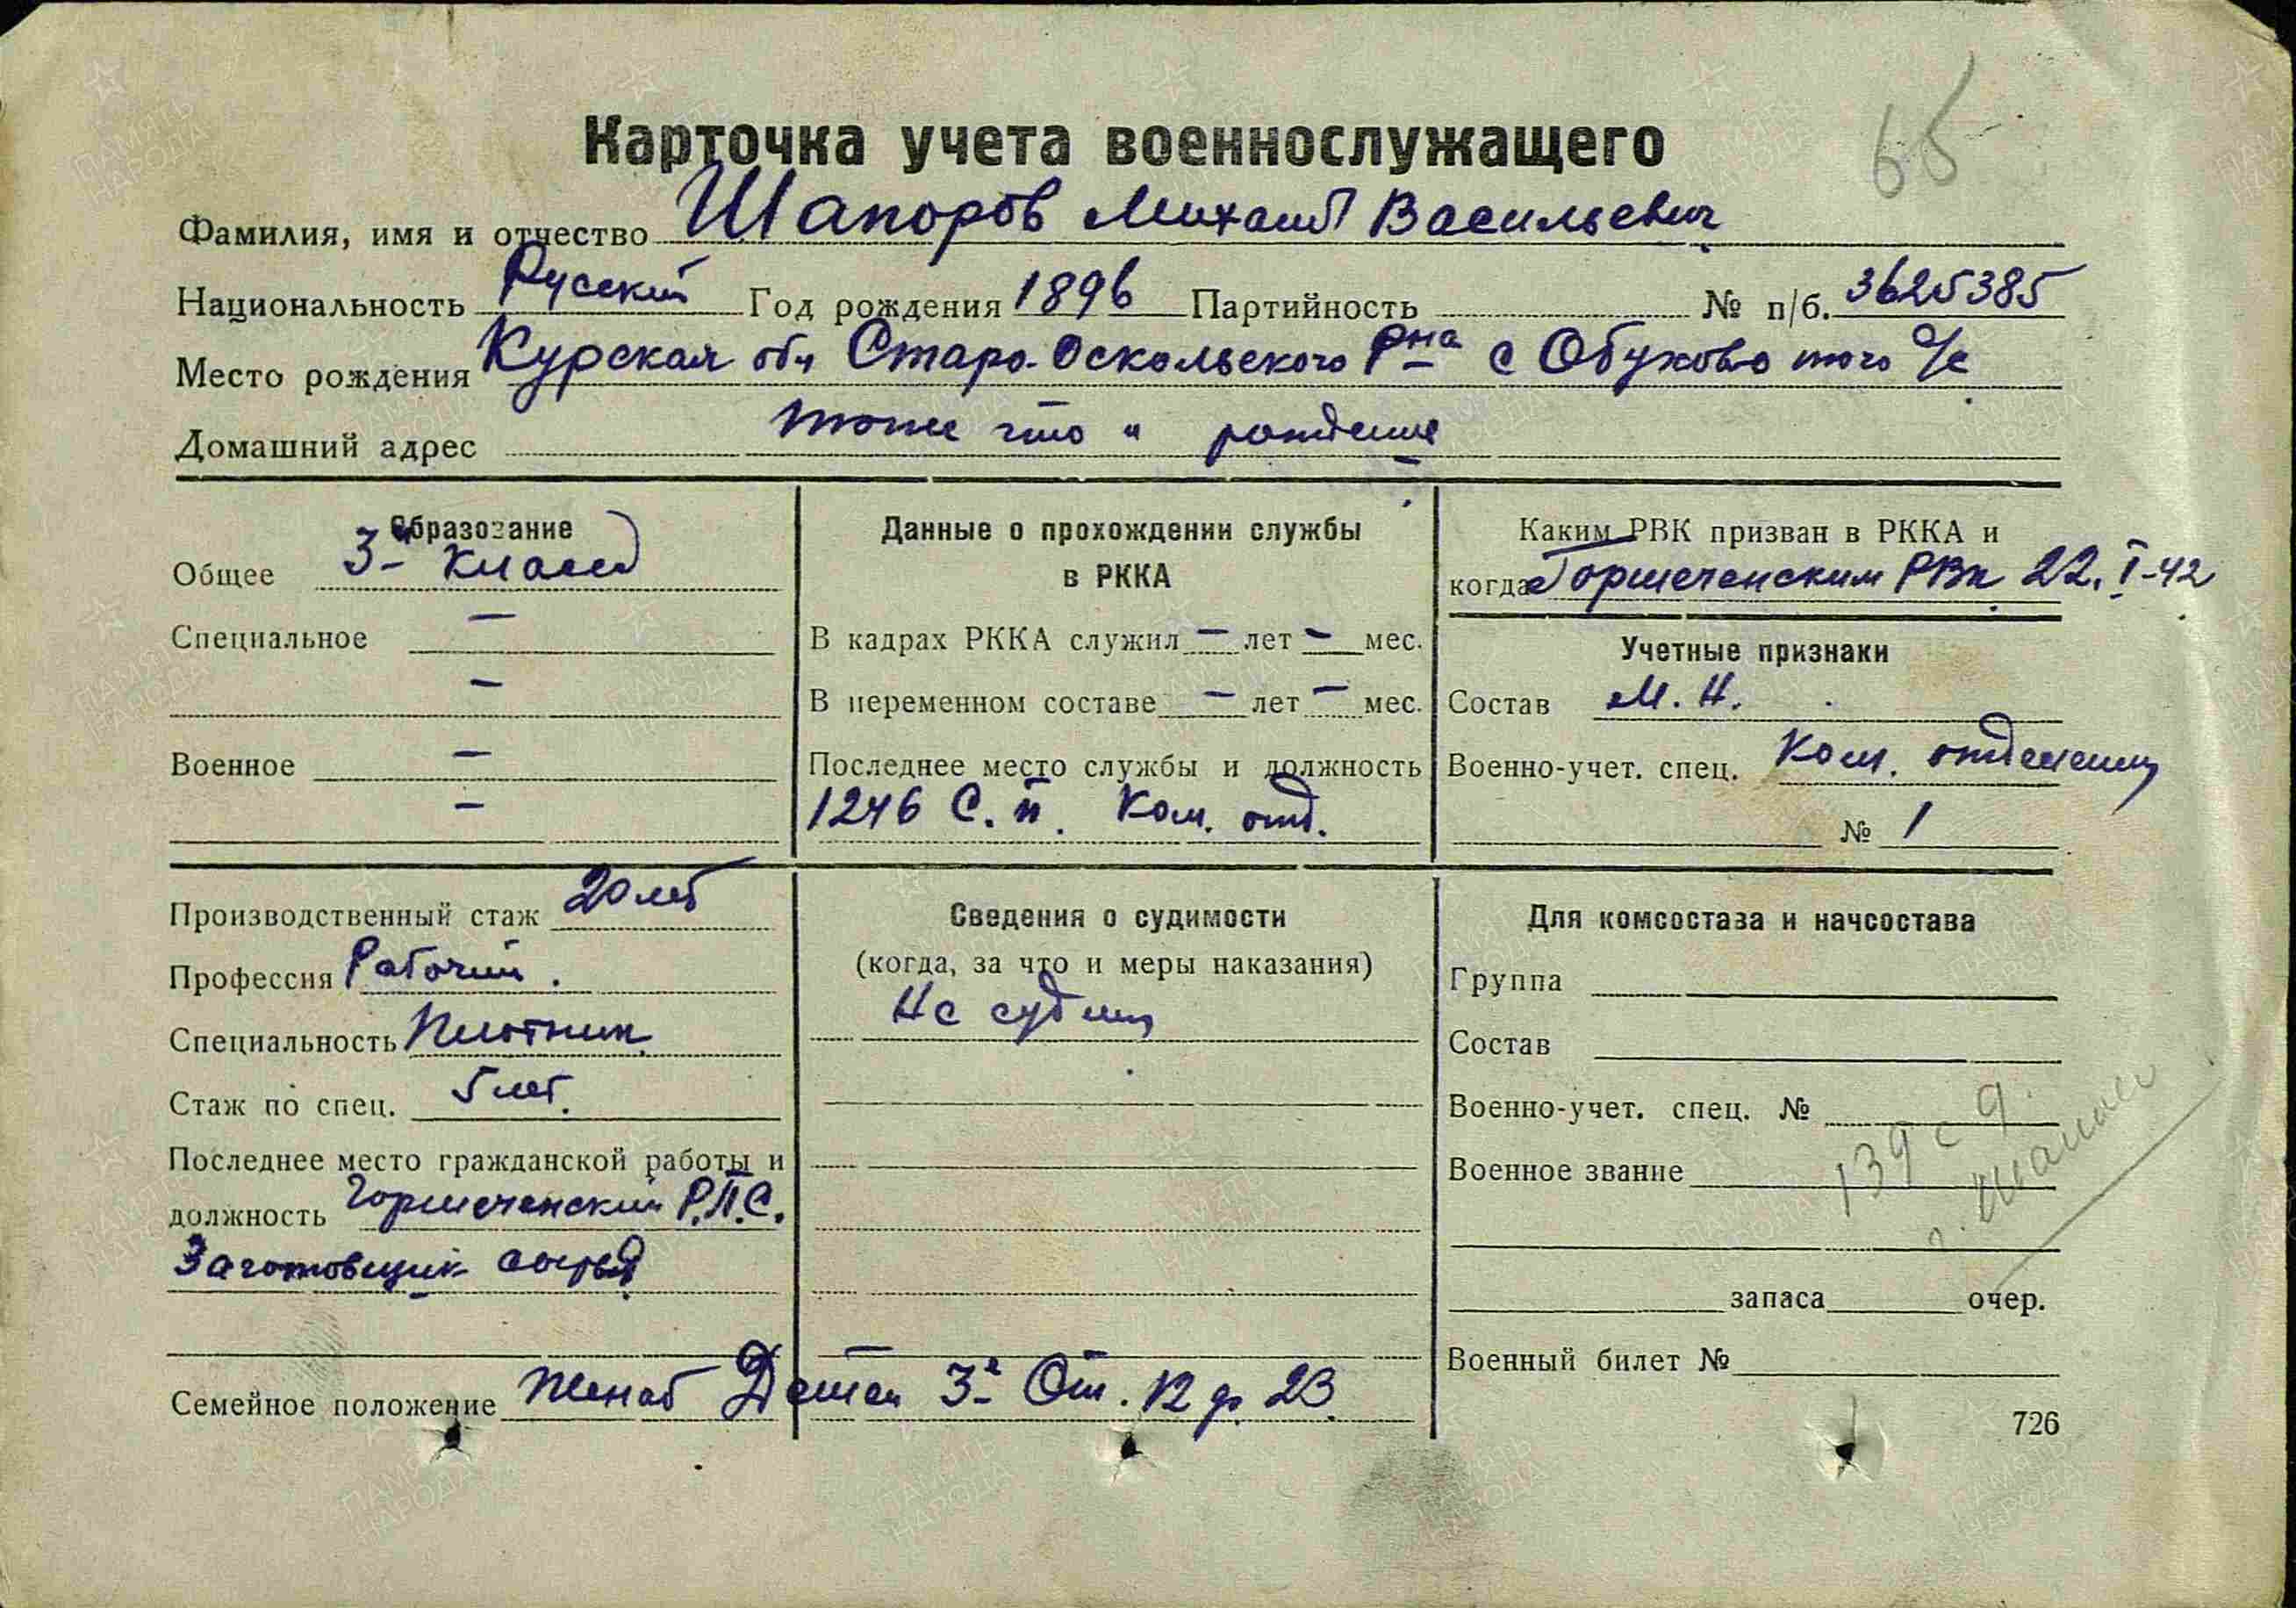 65
Карточка учета военнослужащего
Фамилия, имя и отчество Шапоров Михаил Васильевич
Национальность Русский Год рождения 1896 Партийность № п/б. 3625385
Место рождения Курская обл Старо-Оскольского Р-на с Обухово того с/с
Домашний адрес тоже что и рождение
Образование
Общее 3-й класса
Специальное –
–
Военное –
–
Данные о прохождении службы
в РККА
В кадрах РККА служил – лет – мес.
В переменном составе – лет – мес.
Последнее место службы и должность
1246 С. п. Ком. отд.
Каким РВК призван в РККА и
когда Горшеченским РВк 22. I-42
Учетные признаки
Состав М. Н.
Военно-учет. спец. Ком. отделения
№ 1
Производственный стаж 20 лет
Профессия Рабочий.
Специальность Плотник
Стаж по спец. 5 лет.
Последнее место гражданской работы и
должность Горшеченский Р.П.С.
Заготовщик сырья
Семейное положение Женат Детей 3-е От 12 до 23
Сведения о судимости
(когда, за что и меры наказания)
Не судим
Для комсостава и начсостава
Группа
Состав
Военно-учет. спец. №
Военное звание
запаса очер.
Военный билет №
139 с д.
726
ПАМЯТЬ НАРОДА